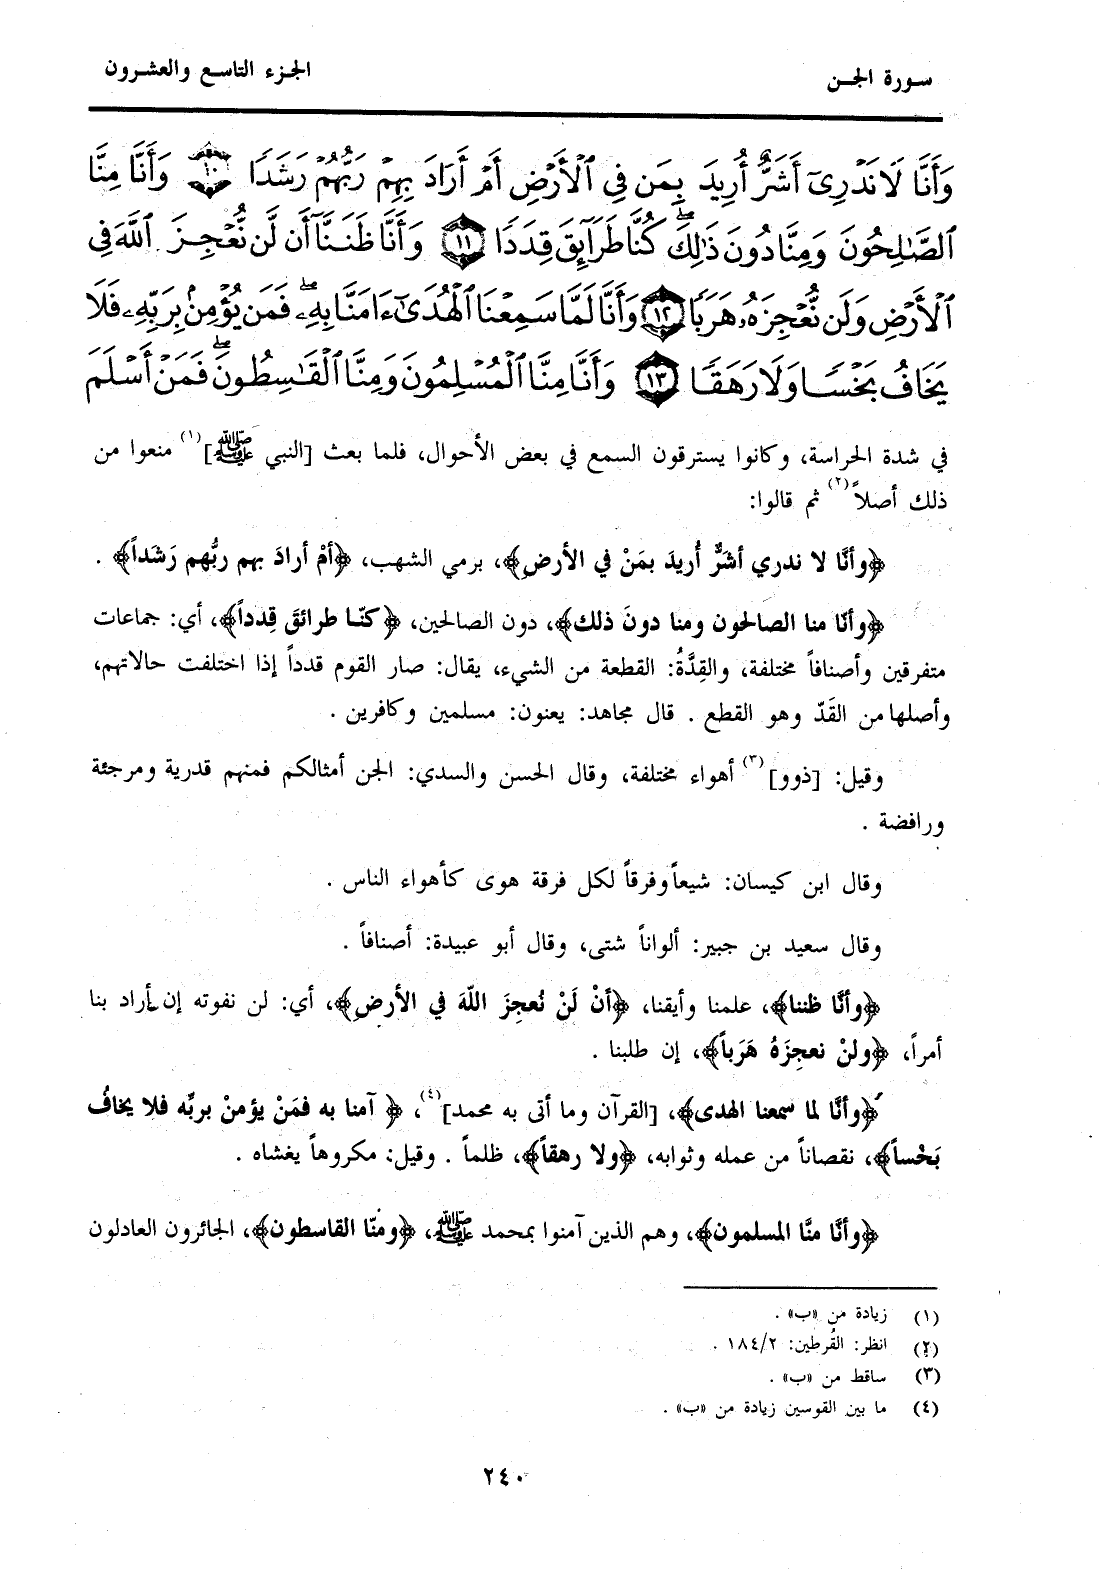 سورة الجن
الجزء التاسع والعشرون
وَأَنَّا لَا نَدْرِىٓ أَشَرٌّ أُرِيدَ بِمَن فِى ٱلْأَرْضِ أَمْ أَرَادَ بِهِمْ رَبُّهُمْ رَشَدًا ١٠ وَأَنَّا مِنَّا
ٱلصَّٰلِحُونَ وَمِنَّا دُونَ ذَٰلِكَ ۖ كُنَّا طَرَآئِقَ قِدَدًا ١١ وَأَنَّا ظَنَنَّآ أَن لَّن نُّعْجِزَ ٱللَّهَ فِى
ٱلْأَرْضِ وَلَن نُّعْجِزَهُۥ هَرَبًا ١٢ وَأَنَّا لَمَّا سَمِعْنَا ٱلْهُدَىٰٓ ءَامَنَّا بِهِۦ ۖ فَمَن يُؤْمِنۢ بِرَبِّهِۦ فَلَا
يَخَافُ بَخْسًا وَلَا رَهَقًا ١٣ وَأَنَّا مِنَّا ٱلْمُسْلِمُونَ وَمِنَّا ٱلْقَٰسِطُونَ ۖ فَمَنْ أَسْلَمَ
في شدة الحراسة، وكانوا يسترقون السمع في بعض الأحوال، فلما بعث [النبي ﷺ](١) منعوا من
ذلك أصلاً(٢) ثم قالوا:
﴿وأنَّا لا ندري أشرٌّ أُريدَ بمَنْ في الأرضِ﴾، برمي الشهب، ﴿أمْ أرادَ بهم ربُّهم رَشَداً﴾ .
﴿وأنّا منا الصالحون ومنا دونَ ذلك﴾، دون الصالحين، ﴿كنّا طرائقَ قِدداً﴾، أي: جماعات
متفرقين وأصنافاً مختلفة، والقِدَّةُ: القطعة من الشيء، يقال: صار القوم قدداً إذا اختلفت حالاتهم،
وأصلها من القَدّ وهو القطع . قال مجاهد: يعنون: مسلمين وكافرين .
وقيل: [ذوو](٣) أهواء مختلفة، وقال الحسن والسدي: الجن أمثالكم فمنهم قدرية ومرجئة
ورافضة .
وقال ابن كيسان: شيعاً وفرقاً لكل فرقة هوى كأهواء الناس .
وقال سعيد بن جبير: ألواناً شتى، وقال أبو عبيدة: أصنافاً .
﴿وأنَّا ظننا﴾، علمنا وأيقنا، ﴿أنْ لَنْ نُعجِزَ اللّهَ في الأرضِ﴾، أي: لن نفوته إن أراد بنا
أمراً، ﴿ولنْ نعجِزَهُ هَرَباً﴾، إن طلبنا .
﴿وأنَّا لما سمعنا الهدى﴾، [القرآن وما أتى به محمد](٤)، ﴿ آمنا به فمَنْ يؤمنْ بربِّه فلا يخافُ
بَخْساً﴾، نقصاناً من عمله وثوابه، ﴿ولا رهقاً﴾، ظلماً . وقيل: مكروهاً يغشاه .
﴿وأنَّا منَّا المسلمون﴾، وهم الذين آمنوا بمحمد ﷺ، ﴿ومنّا القاسطون﴾، الجائرون العادلون
(١) زيادة من «ب» .
(٢) انظر: القُرطين: ١٨٤/٢ .
(٣) ساقط من «ب» .
(٤) ما بين القوسين زيادة من «ب» .
٢٤٠